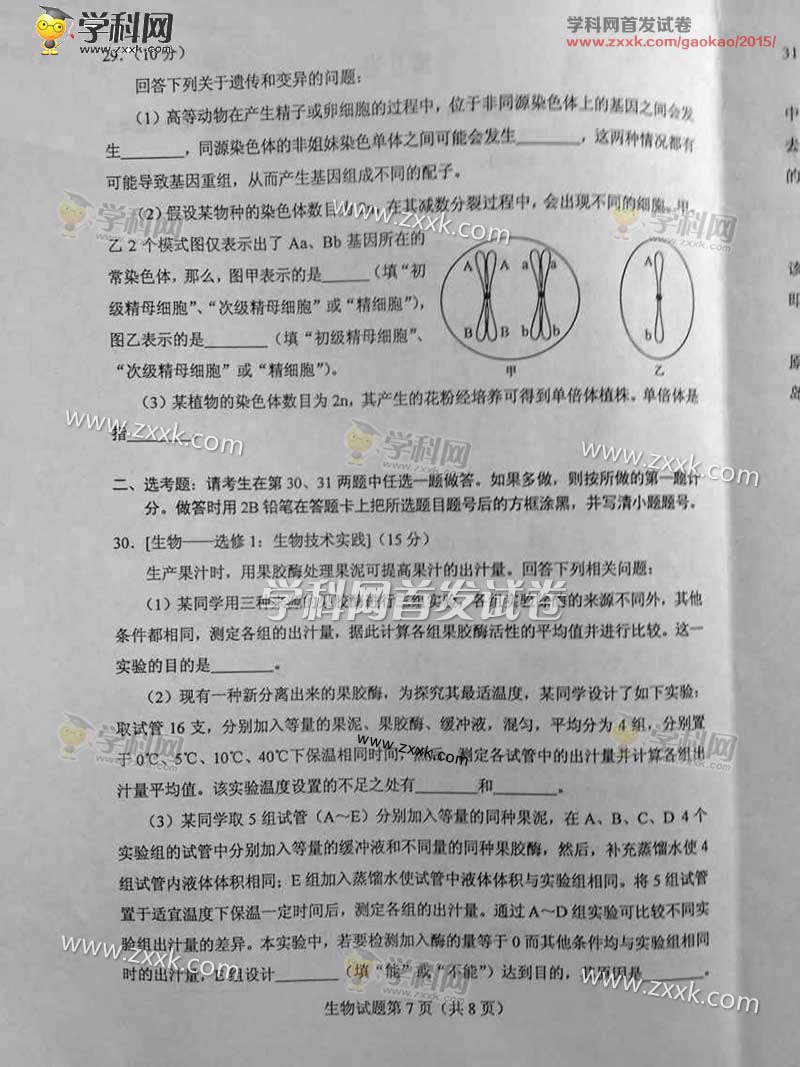 学科网
www.zxxk.com
学科网首发试卷
www.zxxk.com/gaokao/2015/
29.（10分）
回答下列关于遗传和变异的问题：
（1）高等动物在产生精子或卵细胞的过程中，位于非同源染色体上的基因之间会发
生________，同源染色体的非姐妹染色单体之间可能会发生________，这两种情况都有
可能导致基因重组，从而产生基因组成不同的配子。
（2）假设某物种的染色体数目为2n，在其减数分裂过程中，会出现不同的细胞，甲、
乙 2 个模式图仅表示出了 Aa、Bb 基因所在的
常染色体，那么，图甲表示的是________（填“初
级精母细胞”、“次级精母细胞”或“精细胞”），
图乙表示的是________（填“初级精母细胞”、
“次级精母细胞”或“精细胞”）。
A A a a
B B b b
甲
A
b
乙
（3）某植物的染色体数目为 2n，其产生的花粉经培养可得到单倍体植株。单倍体是
指
二、选考题：请考生在第 30、31 两题中任选一题做答。如果多做，则按所做的第一题计
分。做答时用 2B 铅笔在答题卡上把所选题目题号后的方框涂黑，并写清小题题号。
30．[生物——选修 1：生物技术实践]（15 分）
生产果汁时，用果胶酶处理果泥可提高果汁的出汁量。回答下列相关问题：
（1）某同学用三种 的来源不同外，其他
条件都相同，测定各组的出汁量，据此计算各组果胶酶活性的平均值并进行比较。这一
实验的目的是________。
学科网首发试卷
（2）现有一种新分离出来的果胶酶，为探究其最适温度，某同学设计了如下实验：
取试管 16 支，分别加入等量的果泥、果胶酶、缓冲液，混匀，平均分为 4 组，分别置
于 0℃、5℃、10℃、40℃下保温相同时间，然后，测定各试管中的出汁量并计算各组出
汁量平均值。该实验温度设置的不足之处有________和________。
（3）某同学取 5 组试管（A～E）分别加入等量的同种果泥，在 A、B、C、D 4 个
实验组的试管中分别加入等量的缓冲液和不同量的同种果胶酶，然后，补充蒸馏水使 4
组试管内液体体积相同；E 组加入蒸馏水使试管中液体体积与实验组相同。将 5 组试管
置于适宜温度下保温一定时间后，测定各组的出汁量。通过 A～D 组实验可比较不同实
验组出汁量的差异。本实验中，若要检测加入酶的量等于 0 而其他条件均与实验组相同
时的出汁量，E 组设计________（填“能”或“不能”）达到目的，其原因是________。
生物试题第 7 页（共 8 页）
31
中
去
的
该
即
原
岛